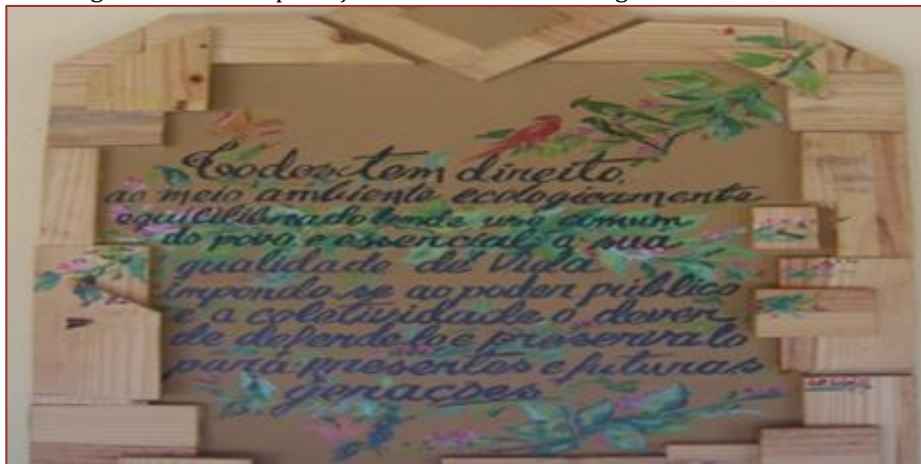 Todos tem direito,
ao meio ambiente ecologicamente
equicilibrado bem de uso comum
do povo e essencial a sua
qualidade de Vida
impondo-se ao poder público
e a coletividade o dever
de defende-lo e preserva-lo
para presentes e futuras
gerações